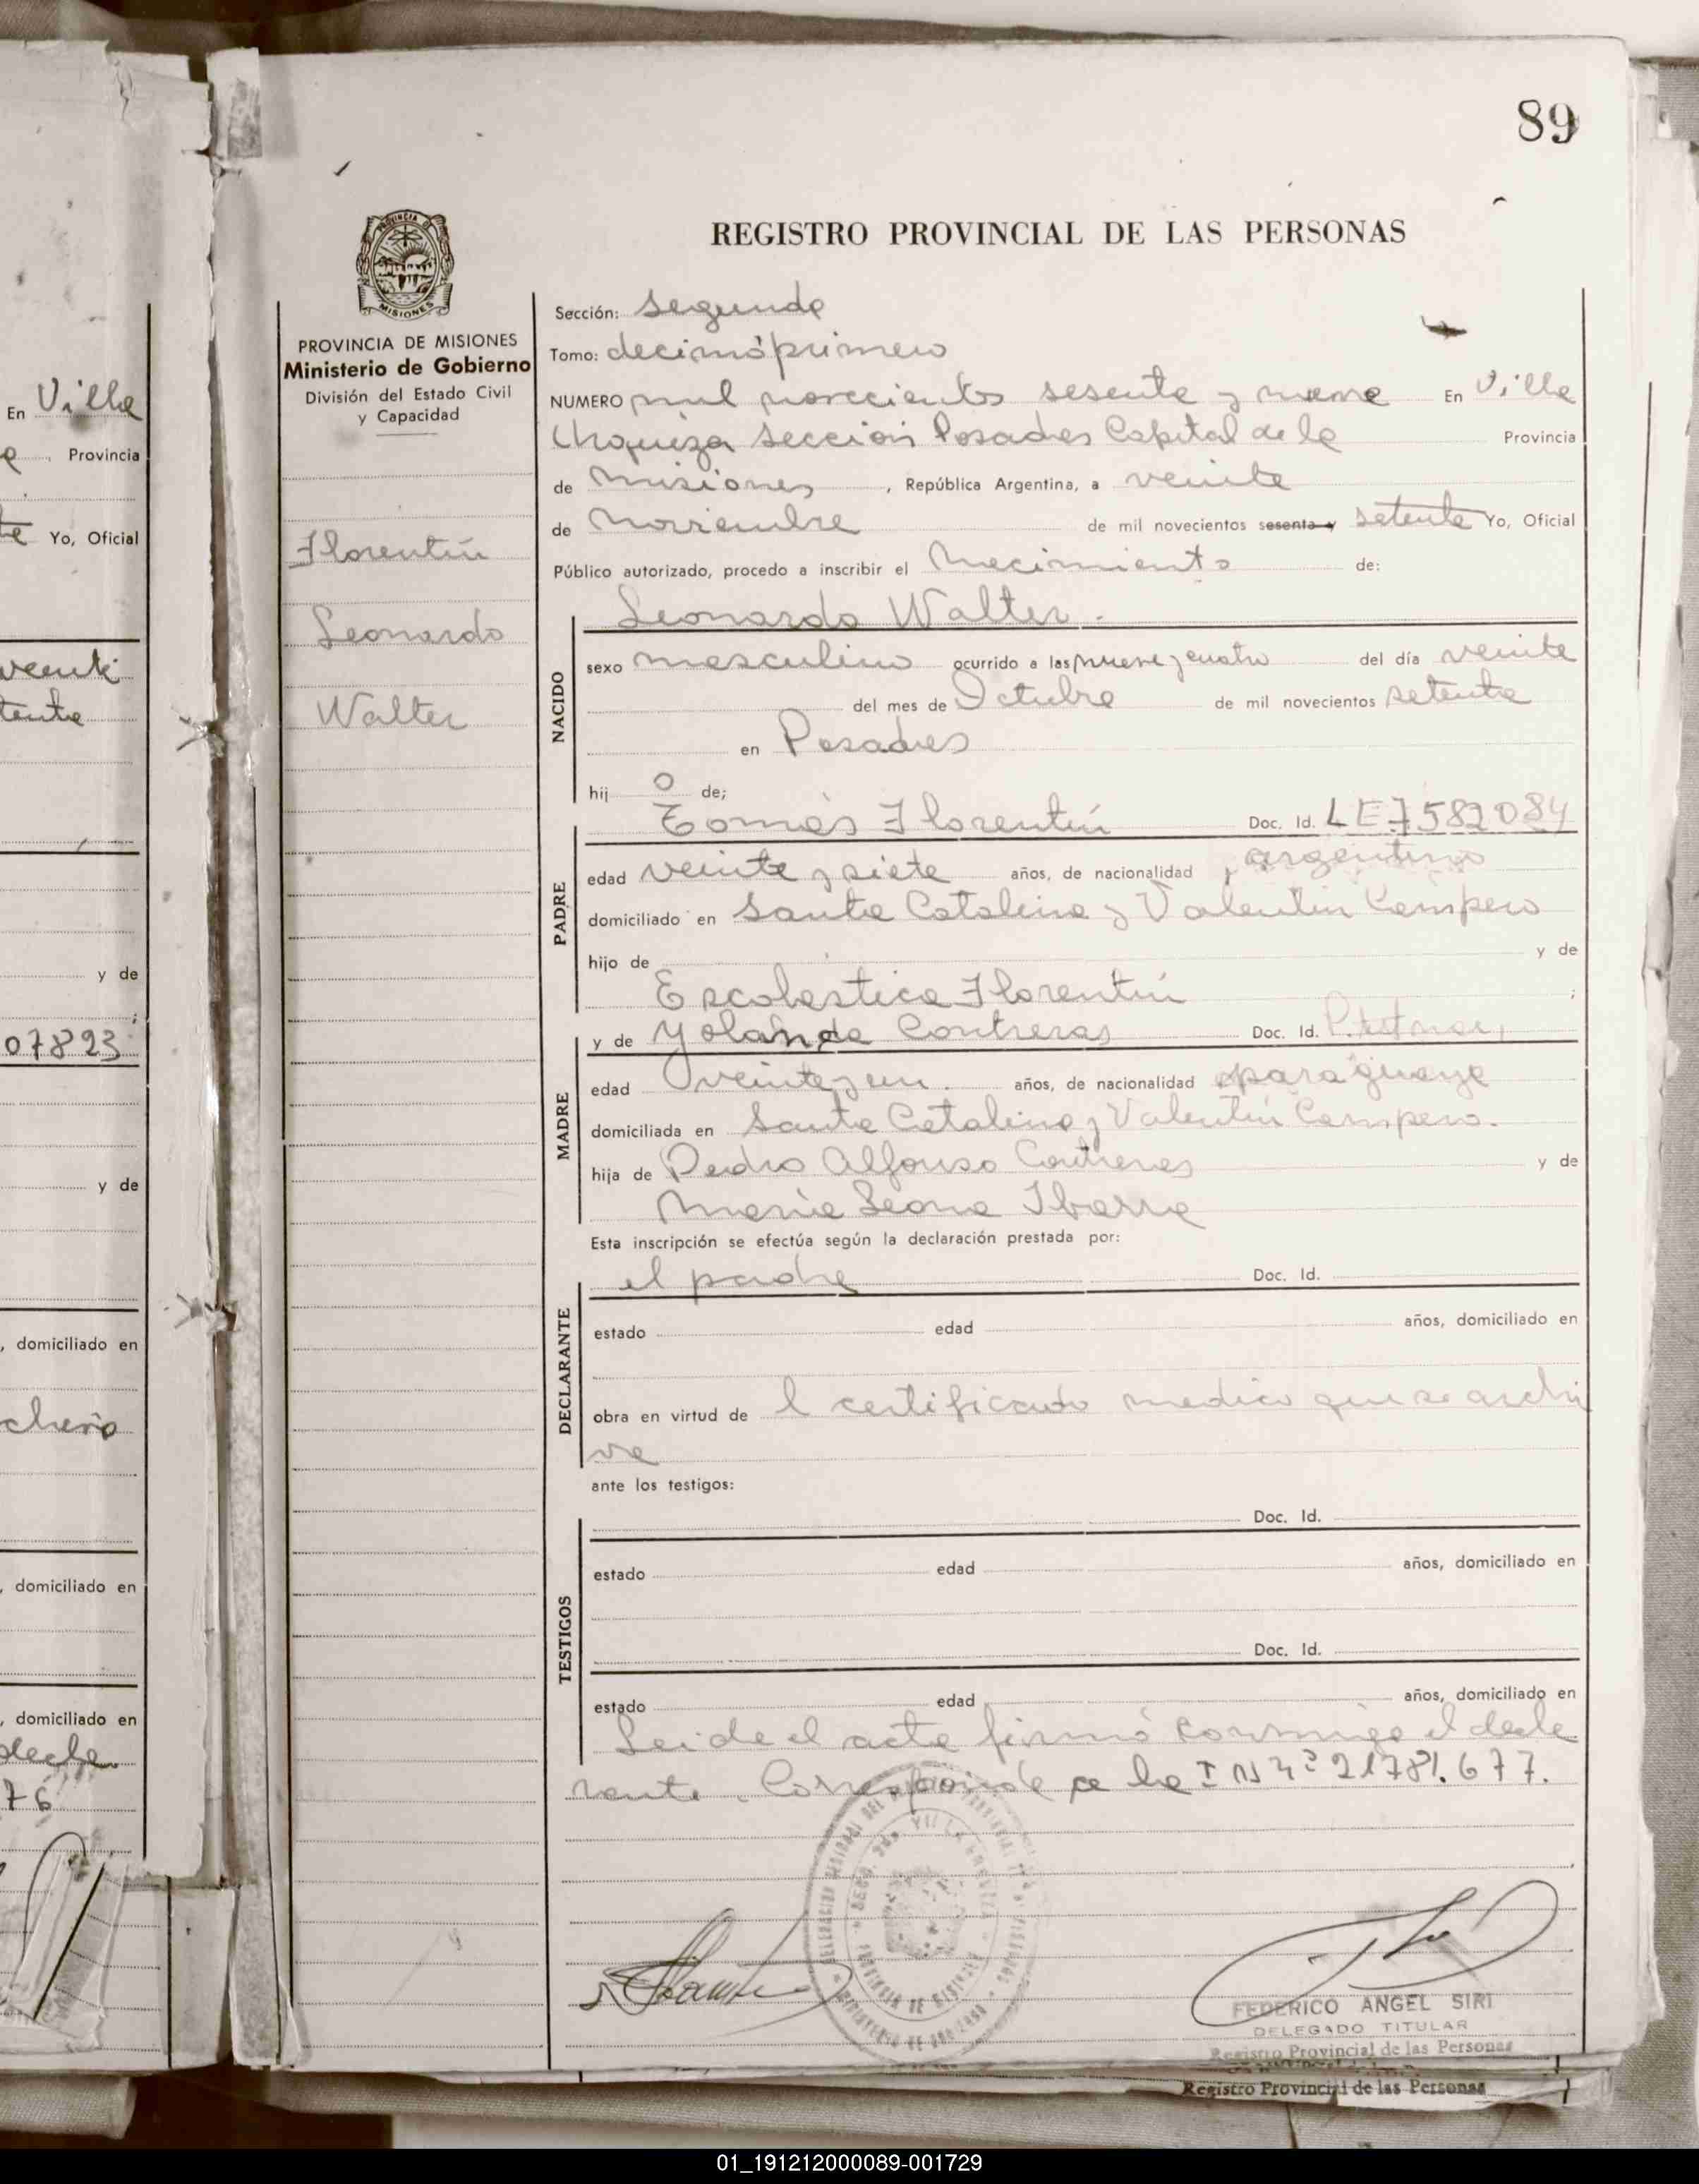 89
REGISTRO PROVINCIAL DE LAS PERSONAS
PROVINCIA DE MISIONES
Ministerio de Gobierno
División del Estado Civil
y Capacidad
Florentín
Leonardo
Walter
Sección: segunda
Tomo: decimóprimero
NUMERO mil novecientos sesenta y nueve En Villa
Urquiza Sección Posadas Capital de la Provincia
de Misiones, República Argentina, a veinte
de Noviembre de mil novecientos sesenta y setenta Yo, Oficial
Público autorizado, procedo a inscribir el Nacimiento de:
Leonardo Walter.-
NACIDO
sexo masculino ocurrido a las nueve y cuatro del día veinte
del mes de Octubre de mil novecientos setenta
en Posadas
hij o de;
Tomás Florentín Doc. Id. LE 7582084
PADRE
edad veinte y siete años, de nacionalidad argentino
domiciliado en Santa Catalina y Valentín Campero
hijo de y de
Escolastica Florentín ;
y de Yolanda Contreras Doc. Id.
MADRE
edad veinte y un. años, de nacionalidad paraguaya
domiciliada en Santa Catalina y Valentín Campero.
hija de Pedro Alfonso Contreras y de
María Leona Ibarra
Esta inscripción se efectúa según la declaración prestada por:
el padre Doc. Id.
DECLARANTE
estado edad años, domiciliado en
obra en virtud de l certificado medico que se archi
va
ante los testigos:
Doc. Id.
TESTIGOS
estado edad años, domiciliado en
Doc. Id.
estado edad años, domiciliado en
Leida el acta firmó conmigo el decla
rante. Corresponde a la I N Nº 21781.677.
FEDERICO ANGEL SIRI
DELEGADO TITULAR
Registro Provincial de las Personas
Registro Provincial de las Personas
En Villa
Provincia
Yo, Oficial
y de
07823
y de
, domiciliado en
, domiciliado en
, domiciliado en
76
01_191212000089-001729